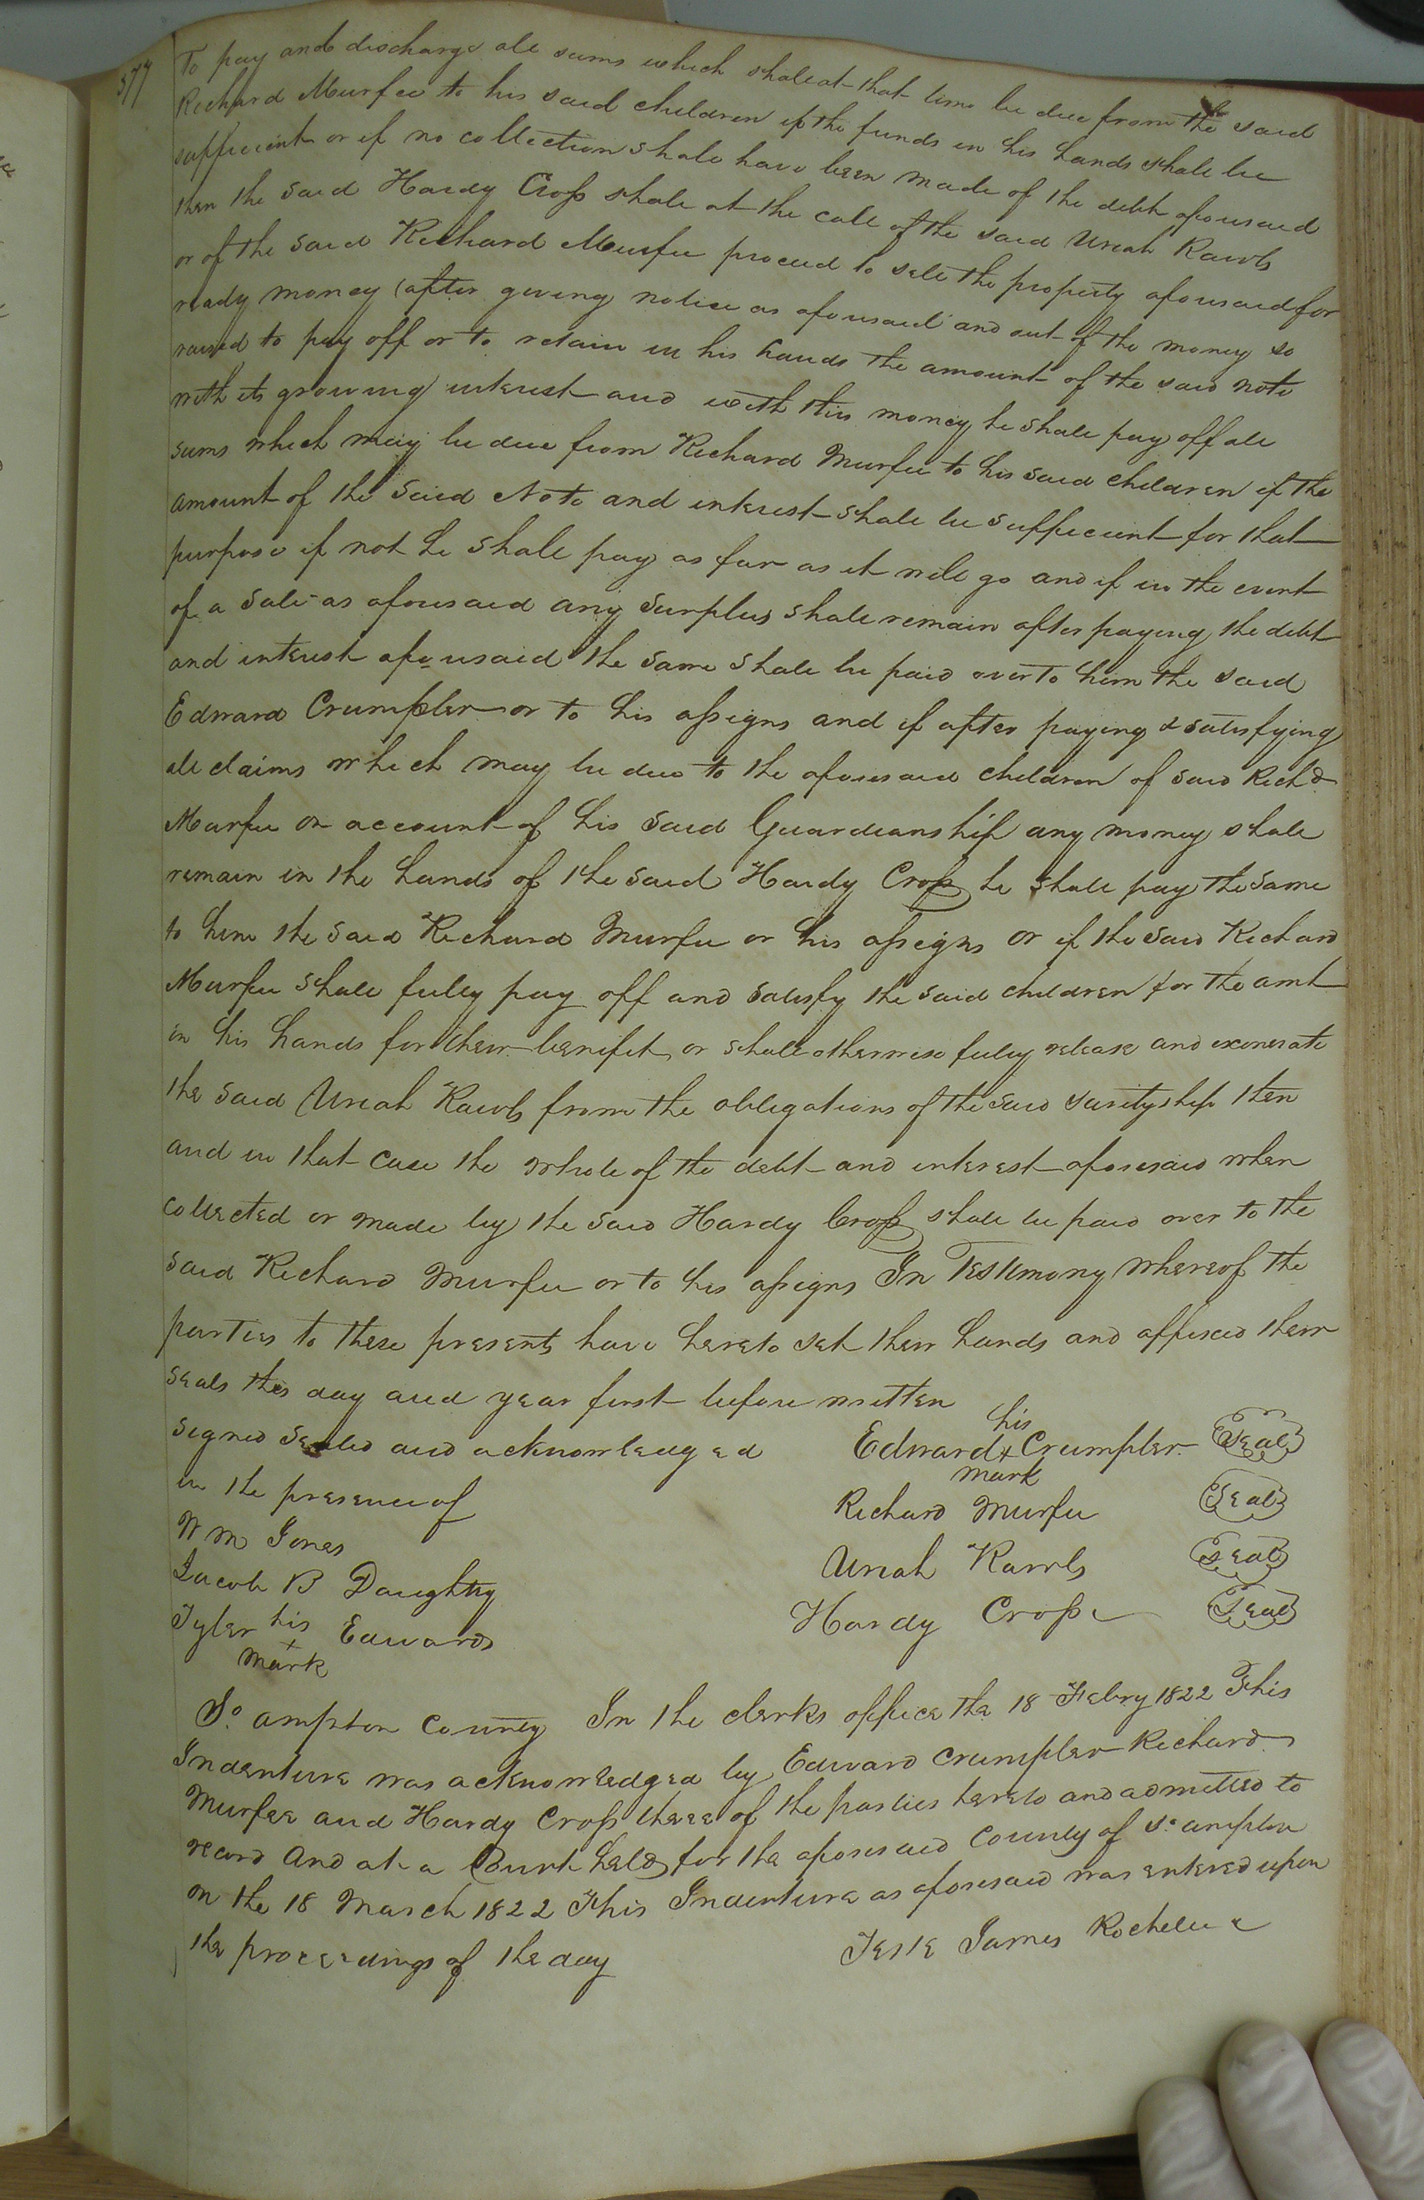 577
To pay and discharge all sums which shall at that time be due from the said
Richard Murfee to his said children if the funds in his hands shall be
sufficient or if no collection shall have been made of the debt aforesaid
then the said Hardy Cross shall at the call of the said Uriah Rawls
or of the said Richard Murfee proceed to sell the property aforesaid for
ready money (after giving notice as aforesaid and out of the money so
raised to pay off or to retain in his hands the amount of the said note
with its growing interest and with this money he shall pay off all
sums which may be due from Richard Murfee to his said children if the
amount of the said Note and interest shall be sufficient for that
purpose if not he shall pay as far as it will go and if in the event
of a Sale as aforesaid any surplus shall remain after paying the debt
and interest aforesaid the same shall be paid over to him the said
Edward Crumpler or to his assigns and if after paying & satisfying
all claims which may be due to the aforesaid children of said Richd
Murfee on account of his said Guardianship any money shall
remain in the hands of the said Hardy Cross he shall pay the same
to him the said Richard Murfee or his assigns or if the said Richard
Murfee shall fully pay off and satisfy the said children for the amt
in his hands for their benifit or shall otherwise fully release and exonerate
the said Uriah Rawls from the obligations of the said surityship then
and in that case the whole of the debt and interest aforesaid when
collected or made by the said Hardy Cross shall be paid over to the
said Richard Murfee or to his assigns In Testimony whereof the
parties to these presents have hereto set their hands and affixed their
seals the day and year first before written
signed sealed and acknowledged
in the presence of
Wm Jones
Jacob B Daughtry
Tyler his Edwards
+
mark
his
Edward + Crumpler Seal
mark
Richard Murfee Seal
Uriah Rawls Seal
Hardy Cross Seal
So ampton County In the clerks office the 18 Febry 1822 This
Indenture was acknowledged by Edward Crumpler Richard
Murfee and Hardy Cross three of the parties hereto and admitted to
record And at a Court held for the aforesaid County of So ampton
on the 18 March 1822 This Indenture as aforesaid was entered upon
the proceedings of the day
Teste James Rochelle